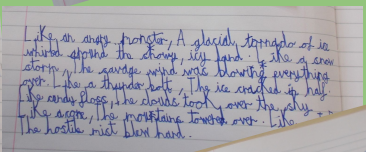 Like an angry monster, A glacial tornado of ice
whirled around the snowy, icy land. Like a snow
storm, The savage wind was blowing everything
over. Like a thunder bolt, The ice cracked in half.
Like candy floss, the clouds took over the sky.
Like a cone, The mountains towered over. Like
The hostile mist blew hard.